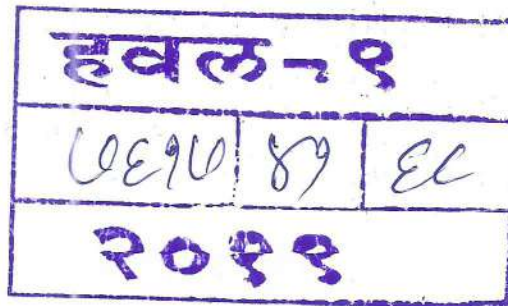 हवल-९
७६१७ ४१ ६८
२०११